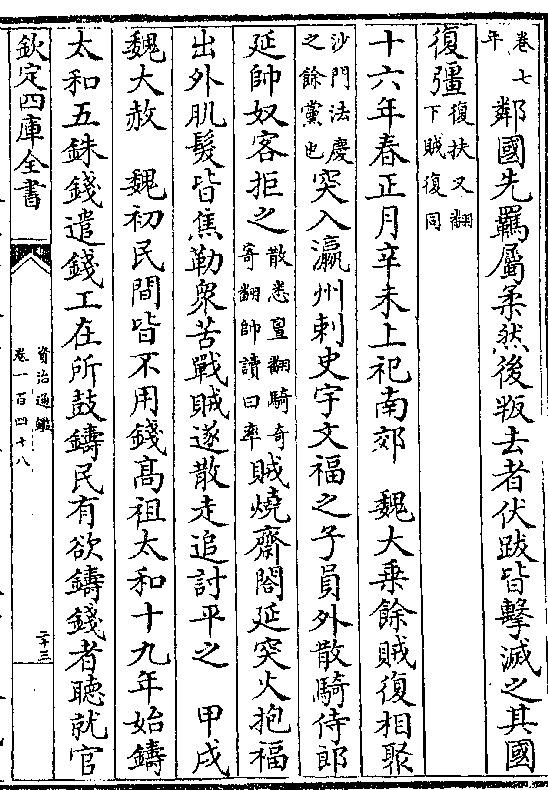 卷七
年
鄰國先羈屬柔然後叛去者伏跋皆擊滅之其國
復彊
復扶又翻
下賊復同
十六年春正月辛未上祀南郊　魏大乗餘賊復相聚
沙門法慶
之餘黨也
突入瀛州刺史宇文福之子員外散騎侍郎
延帥奴客拒之
散悉亶翻騎奇
寄翻帥讀曰率
賊燒齋閤延突火抱福
出外肌髮皆焦勒衆苦戰賊遂散走追討平之　甲戌
魏大赦　魏初民間皆不用錢高祖太和十九年始鑄
太和五銖錢遣錢工在所鼓鑄民有欲鑄錢者聽就官
欽定四庫全書
資治通鑑
卷一百四十八
二十三